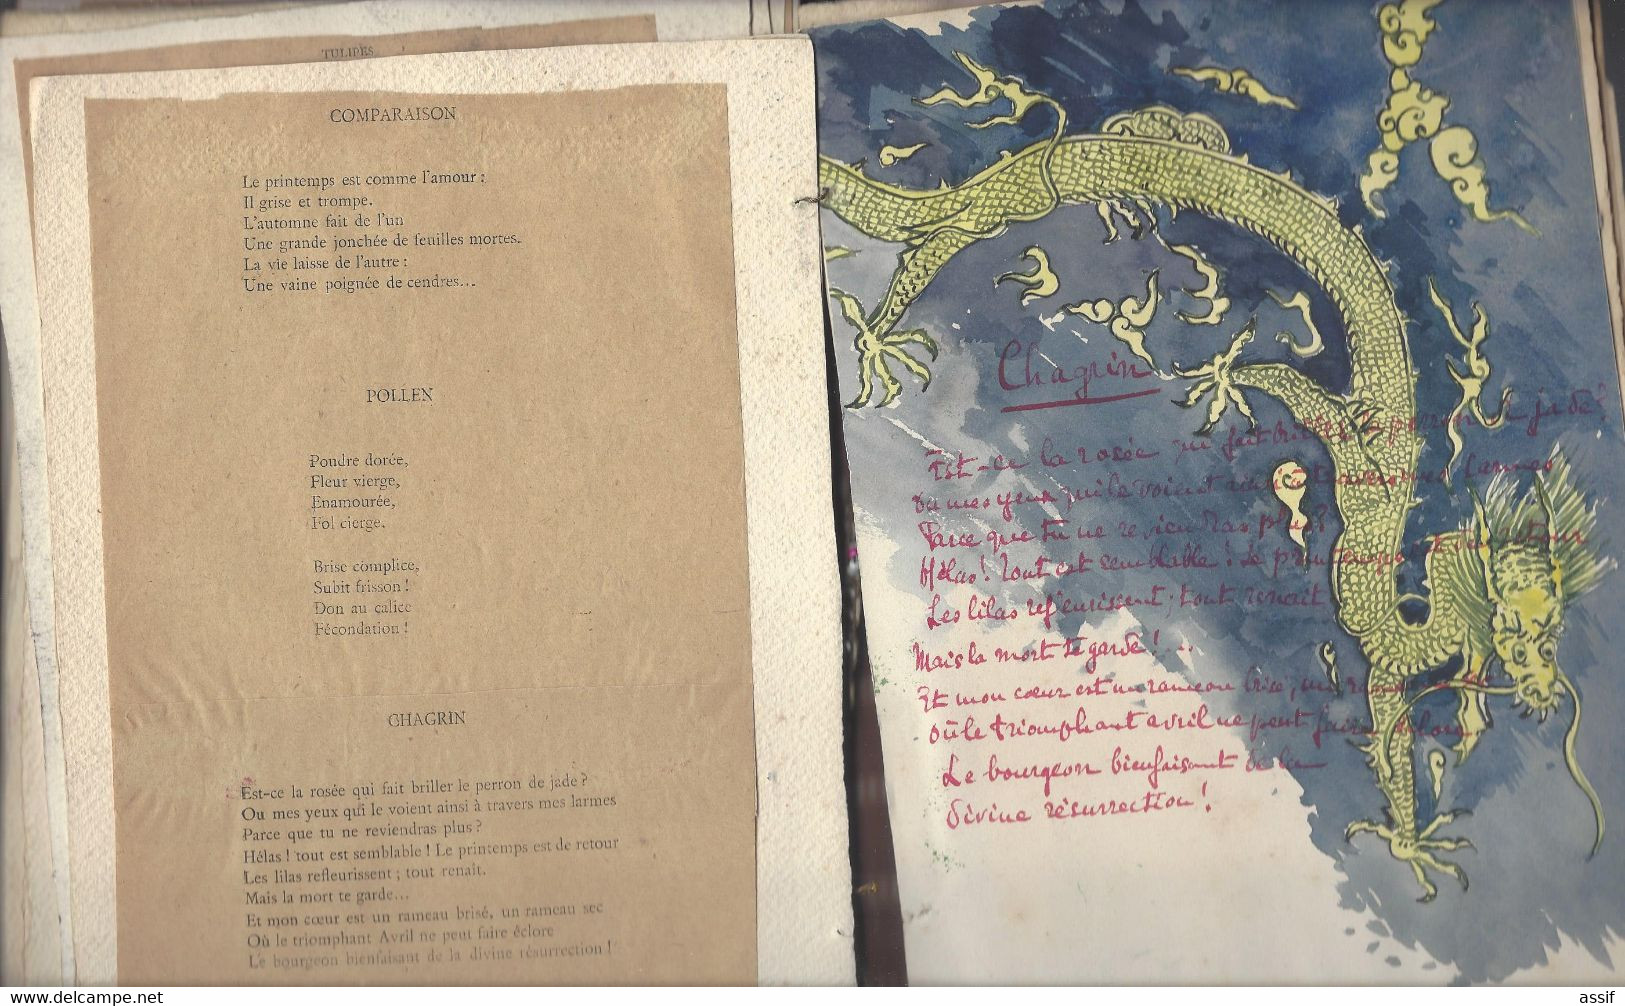 TULIPES
COMPARAISON
Le printemps est comme l'amour :
Il grise et trompe.
L'automne fait de l'un
Une grande jonchée de feuilles mortes.
La vie laisse de l'autre :
Une vaine poignée de cendres...
POLLEN
Poudre dorée,
Fleur vierge,
Enamourée,
Fol cierge.
Brise complice,
Subit frisson !
Don au calice
Fécondation !
CHAGRIN
Est-ce la rosée qui fait briller le perron de jade ?
Ou mes yeux qui le voient ainsi à travers mes larmes
Parce que tu ne reviendras plus ?
Hélas ! tout est semblable ! Le printemps est de retour
Les lilas refleurissent ; tout renaît.
Mais la mort te garde...
Et mon cœur est un rameau brisé, un rameau sec
Où le triomphant Avril ne peut faire éclore
Le bourgeon bienfaisant de la divine résurrection !
Chagrin
Est-ce la rosée qui fait briller le perron de jade?
Ou mes yeux qui le voient ainsi à travers mes larmes
Parce que tu ne reviendras plus?
Hélas! tout est semblable! Le printemps est de retour
Les lilas refleurissent; tout renait
Mais la mort te garde!...
Et mon cœur est un rameau brisé, un rameau sec
Où le triomphant avril ne peut faire éclore
Le bourgeon bienfaisant de la
divine résurrection!
www.delcampe.net
assif